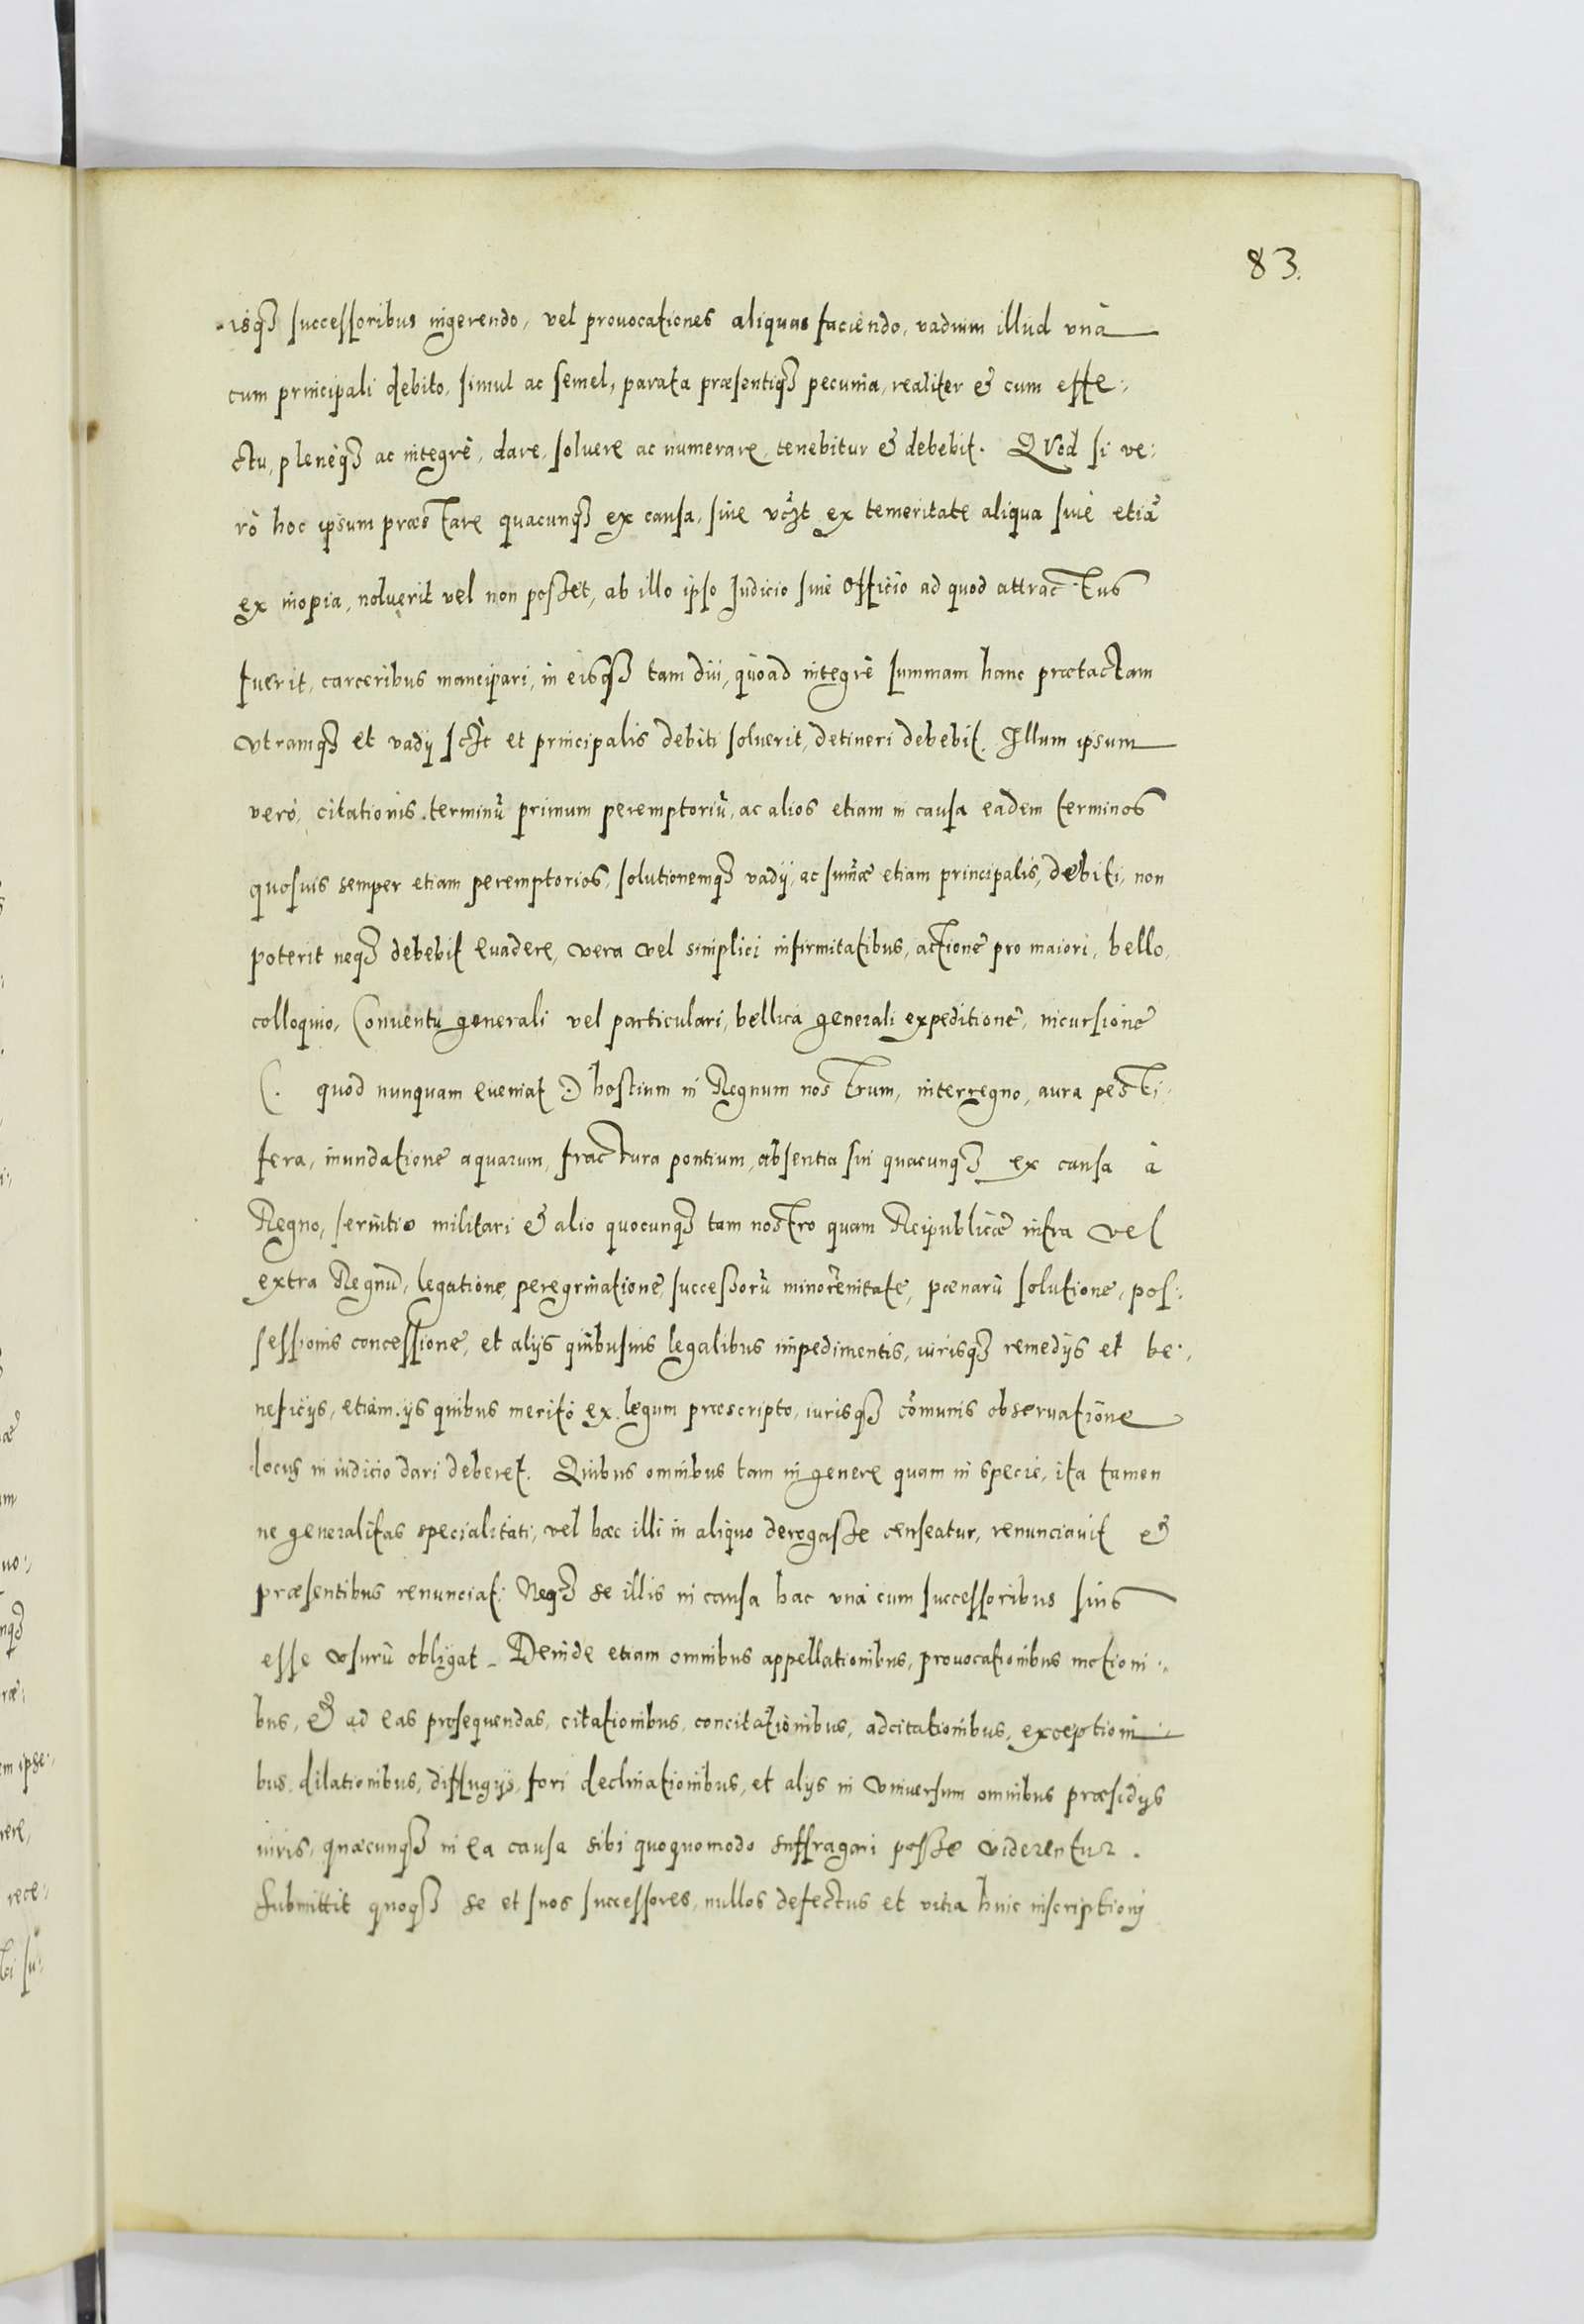 83.
isq₃ successoribus ingerendo, vel prouocationes aliquas faciendo, vadium illud vnà
cum principali debito, simul ac semel, parata præsentiq₃ pecunia, realiter & cum effe:
ctu, plenèq₃ ac integrè, dare, soluere ac numerare, tenebitur & debebit. QVod si ve:
rò hoc ipsum præstare quacunq₃ ex causa, siue ex temeritate aliqua siuè etiã
ex inopia, noluerit vel non posset, ab illo ipso Judicio siuè officio ad quod attractus
fuerit, carceribus mancipari, in eisq₃ tam diu, quoad integrè summam hanc prætactam
vtramq₃ et vadij sclt et principalis debiti soluerit, detineri debebit. Illum ipsum
verò, citationis terminũ primum peremptoriũ, ac alios etiam in causa eadem terminos
quosuis semper etiam peremptorios, solutionemq₃ vadij, ac sum̃æ etiam principalis, debiti, non
poterit neq₃ debebit euadere, vera vel simplici infirmitatibus, actione pro maiori, bello,
colloquio, Conuentu generali vel particulari, bellica generali expeditione, incursione
(. quod nunquam eueniat .) hostium in Regnum nostrum, interregno, aura pesti:
fera, inundatione aquarum, fractura pontium, absentia sui quacunq₃ ex causa à
Regno, seruitio militari & alio quocunq₃ tam nostro quam Reipublicæ infra vel
extra Regnũ, legatione, peregrinatione, successorũ minorenitate, pœnarũ solutione, pos:
sessionis concessione, et alijs quibusuis legalibus impedimentis, iurisq₃ remedijs et be:
neficijs, etiam ijs quibus meritò ex legum præscripto, iurisq₃ cõmunis obseruatione
locus in iudicio dari deberet. Quibus omnibus tam in genere quam in specie, ita tamen
ne generalitas specialitati, vel hæc illi in aliquo derogasse censeatur, renunciauit &
præsentibus renunciat: Neq₃ se illis in causa hac vnà cum successoribus suis
esse vsurũ obligat _ Deinde etiam omnibus appellationibus, prouocationibus motioni:
bus, & ad eas prosequendas, citationibus, concitationibus, adcitationibus, exceptioni:
bus, dilationibus, diffugijs, fori declinationibus, et alijs in vniuersum omnibus præsidijs
iuris, quæcunq₃ in ea causa sibi quoquomodo suffragari posse viderentur.
Submittit quoq₃ se et suos successores, nullos defectus et vitia huic inscriptioni